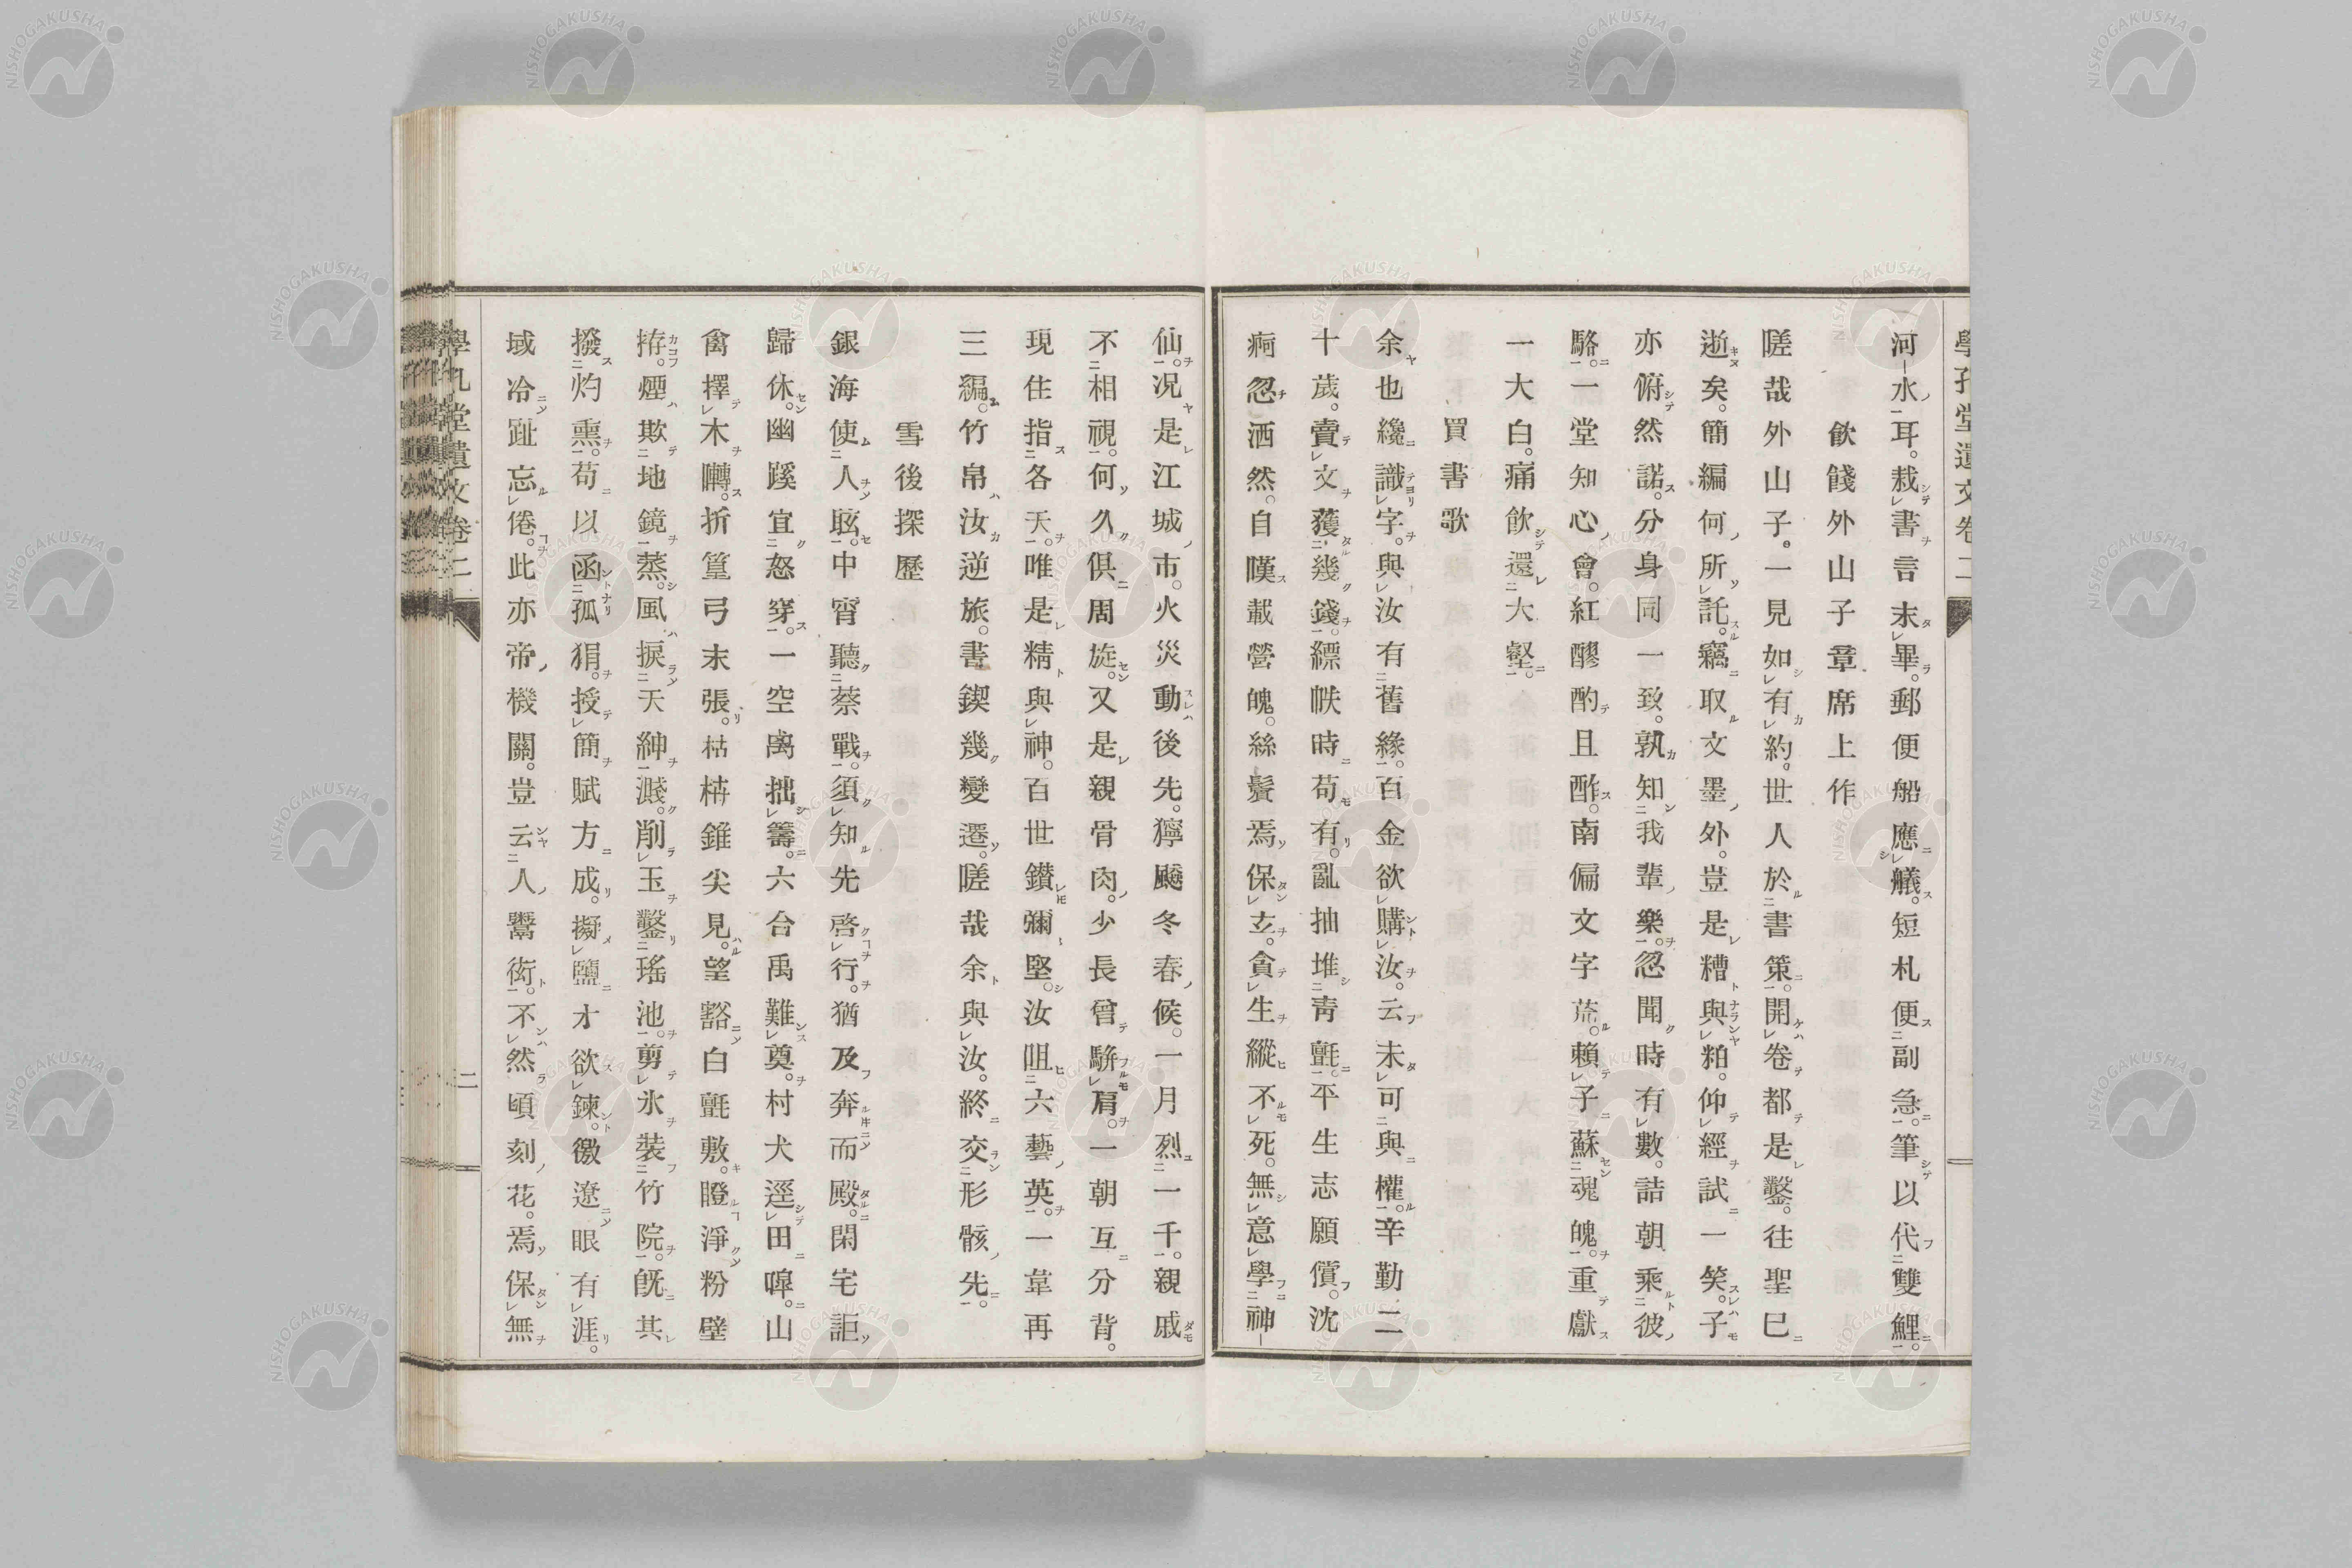 學孔堂遺文卷二
河水耳。裁書言未畢。郵便船應艤。短札便副急。筆以代雙鯉。
飲餞外山子章席上作
嗟哉外山子。一見如有約。世人於書策。開卷都是鑿。往聖巳
逝矣。簡編何所託。竊取文墨外。豈是糟與粕。仰經試一笑。子
亦俯然諾。分身同一致。孰知我輩樂。忽聞時有數。詰朝乘彼
駱。一堂知心會。紅醪酌且酢。南偏文字荒。賴子蘇魂魄。重獻
一大白。痛飲還大壑。
買書歌
余也纔識字。與汝有舊緣。百金欲購汝。云未可與權。辛勤二
十歲。賣文獲幾錢。縹帙時苟有。亂抽堆靑氈。平生志願償。沈
痾忽洒然。自嘆載營魄。絲鬢焉保玄。貪生縱不死。無意學神
仙。况是江城市。火災動後先。獰飇冬春候。一月烈一千。親戚
不相視。何久俱周旋。又是親骨肉。少長曾騈肩。一朝互分背。
現住指各天。唯是精與神。百世鑚彌堅。汝咀六藝英。一韋再
三編。竹帛汝逆旅。書鍥幾變遷。嗟哉余與汝。終交形骸先。
雪後探歷
銀海使人眩。中宵聽蔡戰。須知先啓行。猶及奔而殿。閑宅詎
歸休。幽蹊宜怒穿。一空禼拙籌。六台禹難奠。村犬逕田嘷。山
禽擇木囀。折篁弓末張。枯梼錐尖見。望豁白氈敷。瞪淨粉壁
拵。煙欺地鏡蒸。風捩天紳濺。削玉鑿瑤池。剪氷裝竹院。旣其
撥灼熏。苟以函孤狷。授簡賦方成。擬鹽才欲鍊。徼遼眼有涯。
域冷趾忘倦。此亦帝機關。豈云人鬻衒。不然頃刻花。焉保無
學孔堂遺文卷二
二